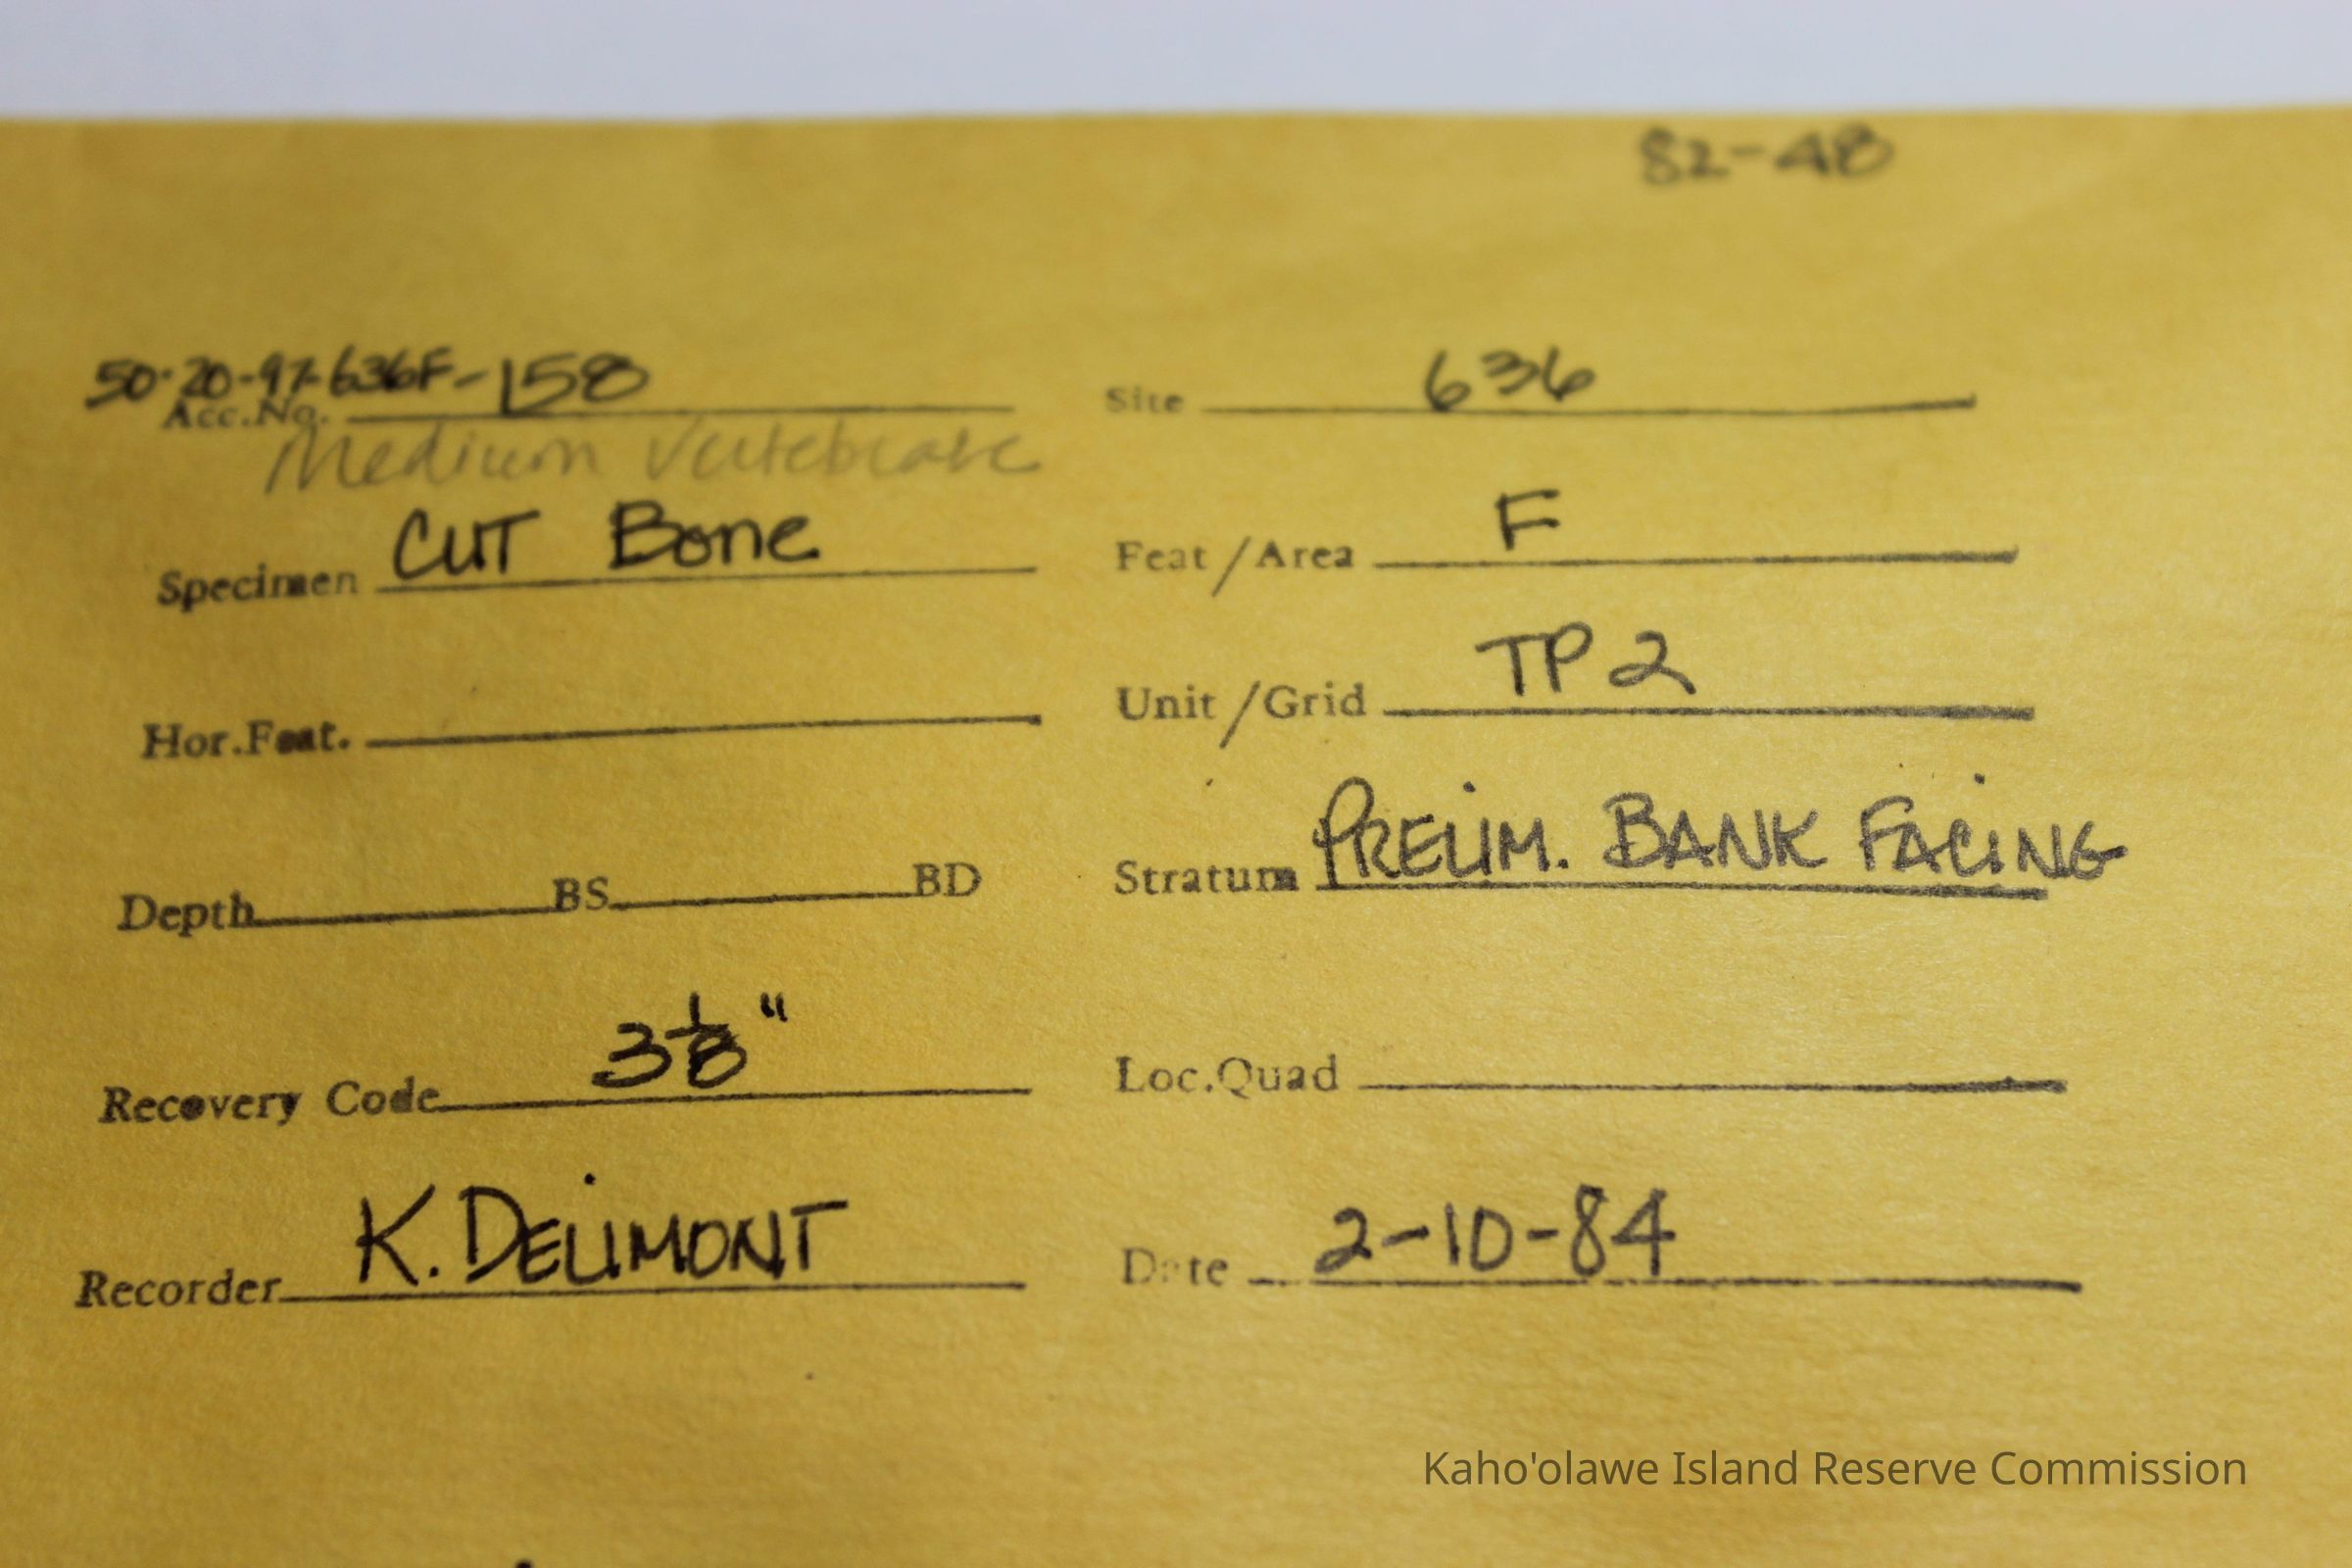 82-48
50-20-97-636F-158
Acc.No.
Medium Vertebrate
Specimen CUT Bone
Hor.Feat.
Depth BS BD
Recovery Code 3 1/8"
Recorder K. DELIMONT
Site 636
Feat/Area F
Unit/Grid TP 2
Stratum PRELIM. BANK FACING
Loc.Quad
Date 2-10-84
Kaho'olawe Island Reserve Commission